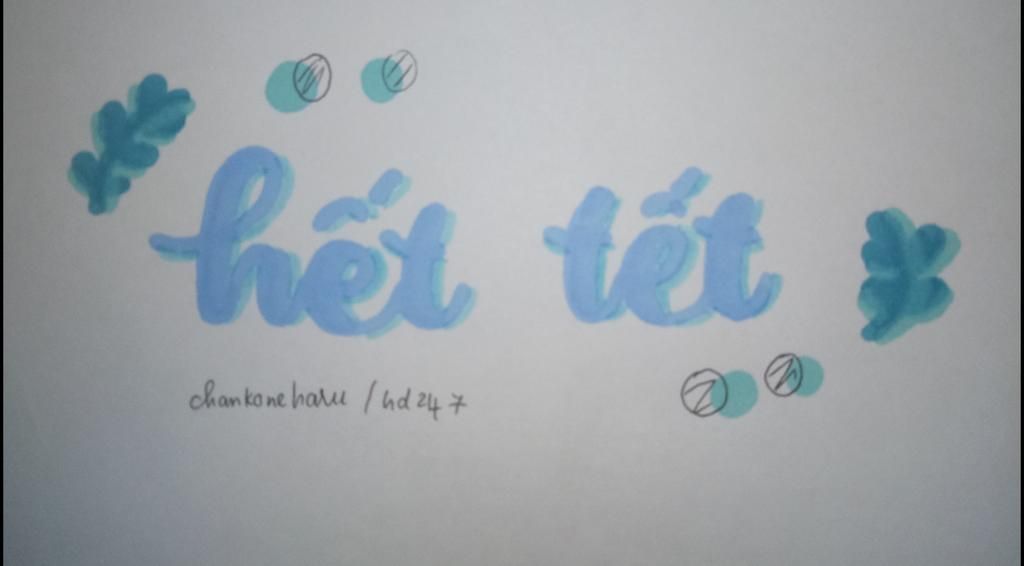 hết tết
chankoneharu /hd247